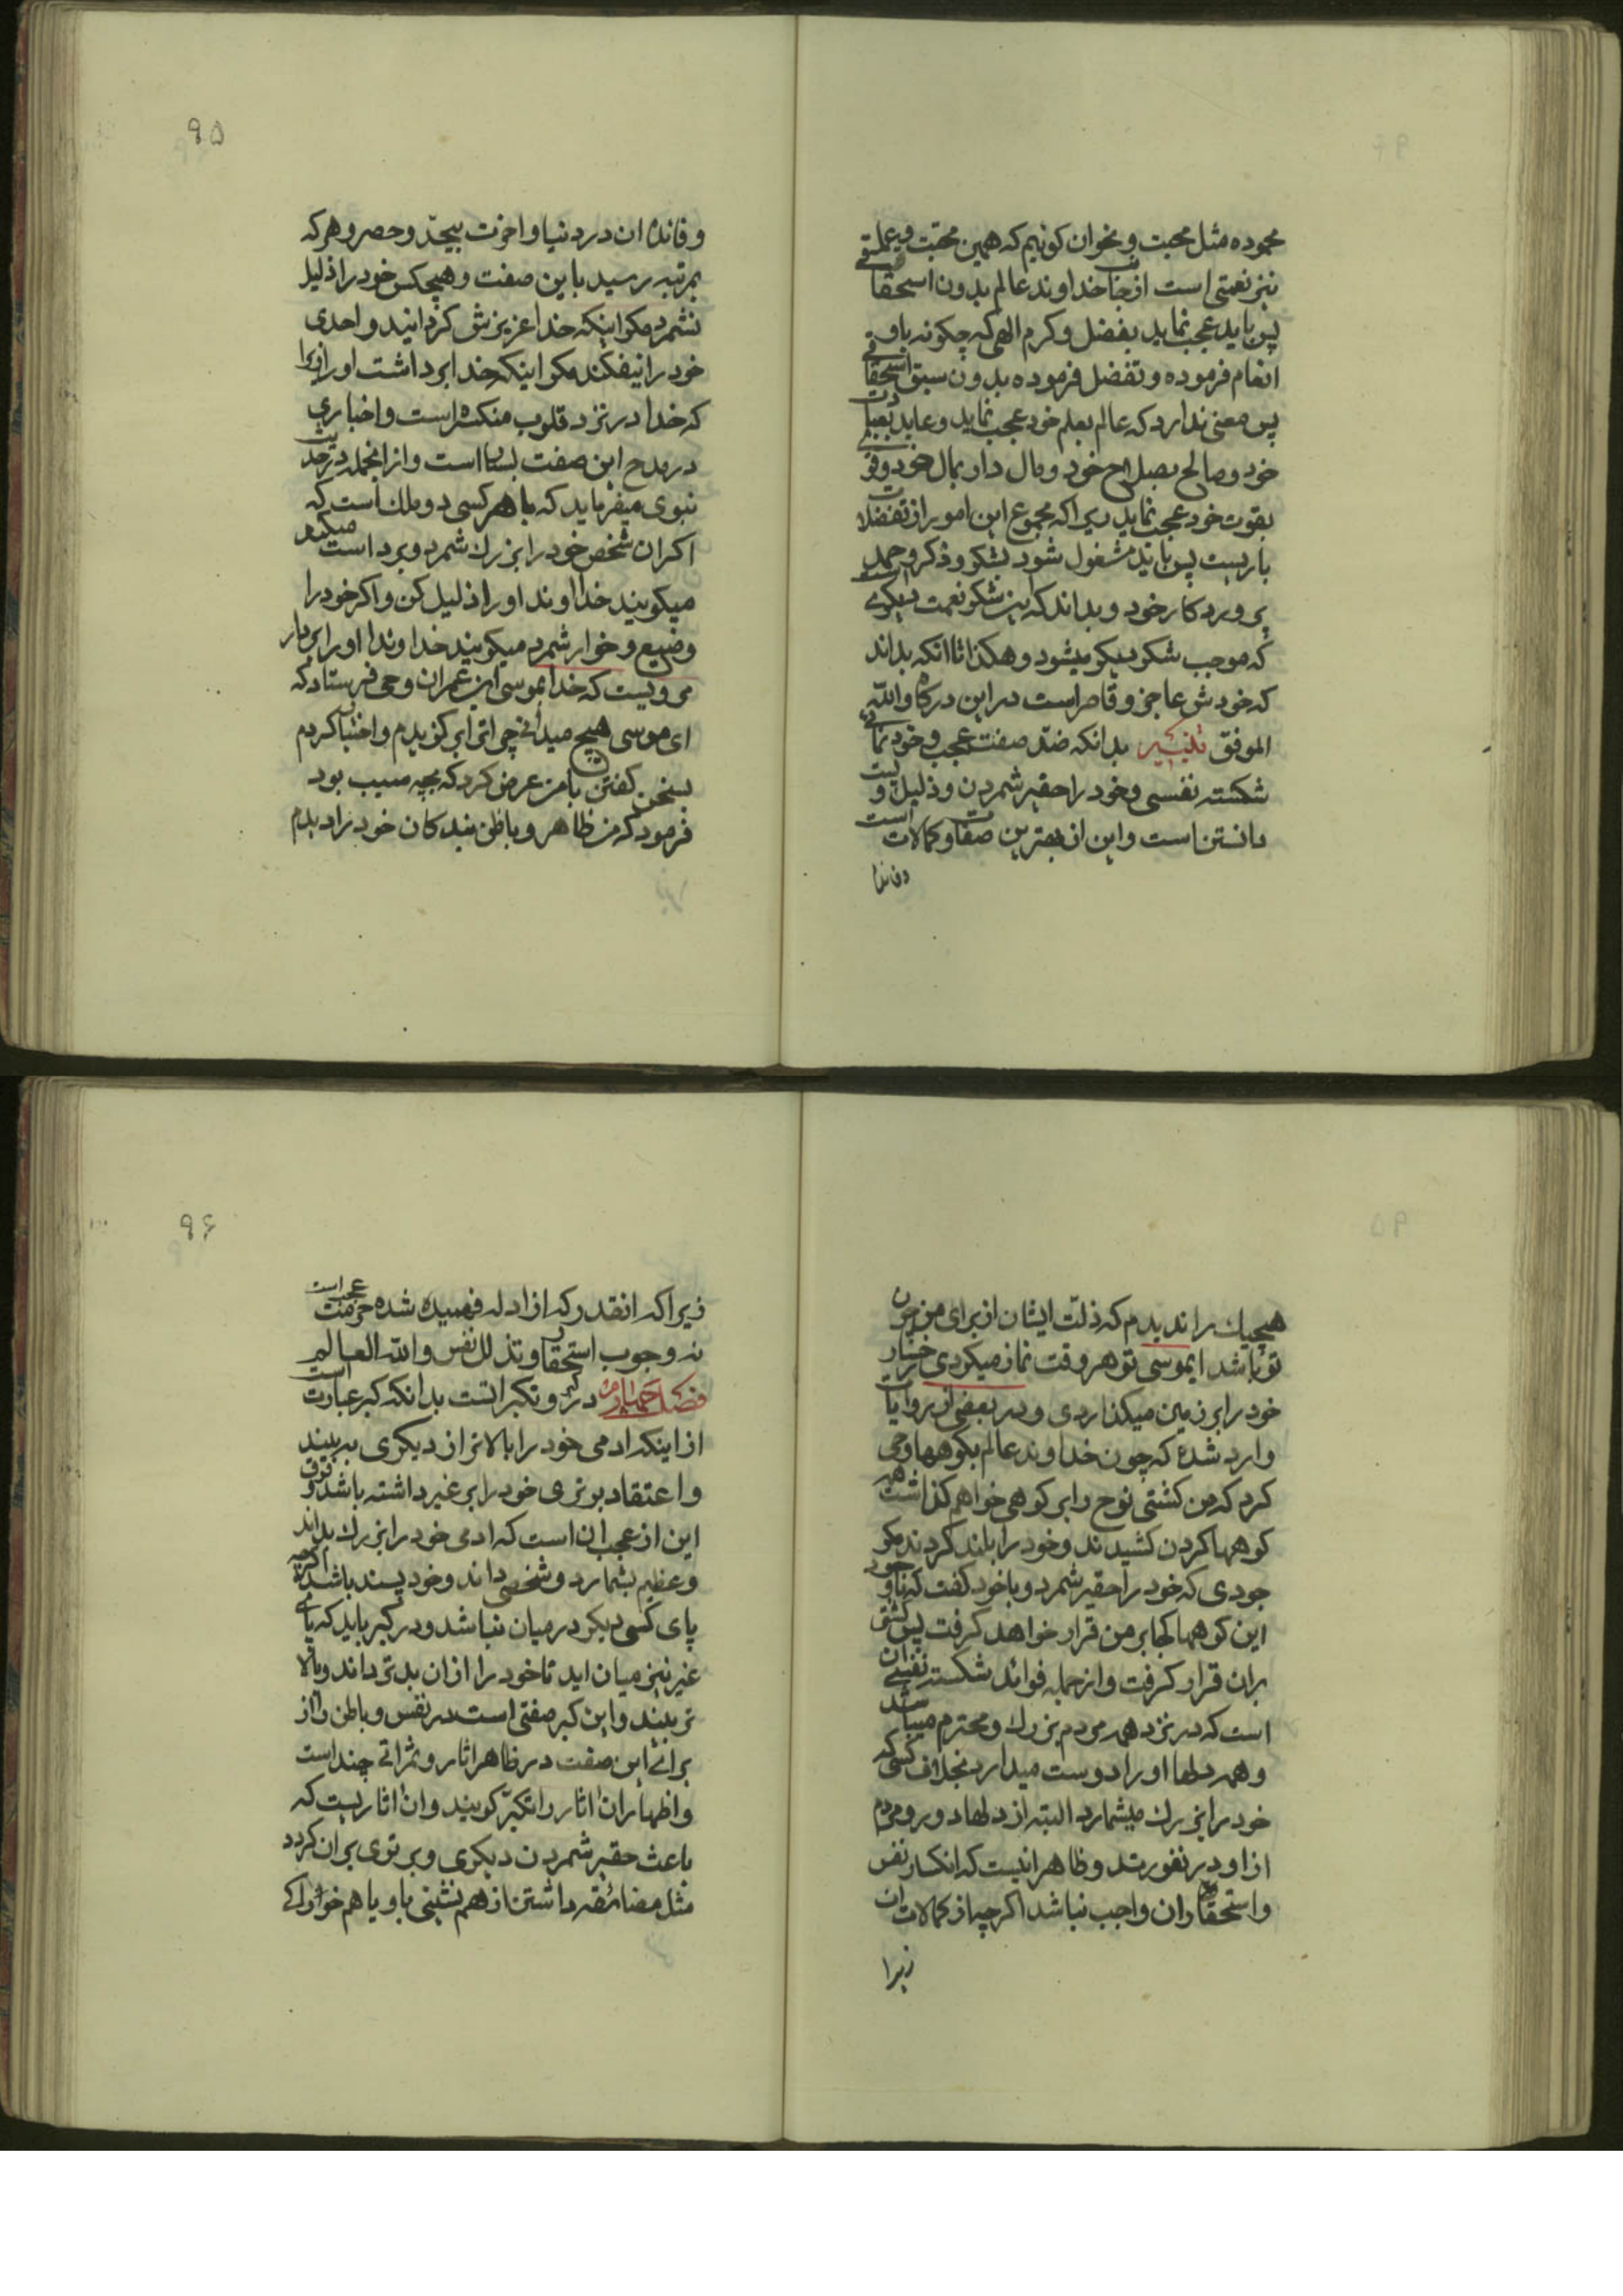 محموده مثل محبت و نحو ان کوئیم که همین محبت و بیعلتی
نیز نعمتی است از جناب خداوند عالم بدون استحقاقی
پس باید عجب نماید بفضل و کرم الهی که چکونه باو
انعام فرموده و تفضل فرموده بدون سبق استحقاقی
پس معنی ندارد که عالم بعلم خود عجب نماید و عابد بعبادت
خود و صالح بصلاح خود و مال دار بمال خود و قوی
بقوت خود عجب نماید زیرا که مجموع این امور از تفضلات
باریست پس باید مشغول شود بشکر و ذکر و حمد
پروردکار خود و بداند که این شکر نعمت دیکریست
که موجب شکر دیکر میشود و هکذا تا انکه بداند
که خودش عاجز و قاصر است در این درکاه والله
الموفق تذنیب بدانکه ضد صفت عجب و خود نمائی
شکسته نفسی و خود را حقیر شمردن و ذلیل و پست
دانستن است و این از بهترین صفات و کمالات است
و فائدهٔ
۹۵
و فائدهٔ ان در دنیا و اخرت بیحدّ و حصر و هر که
بمرتبه رسید باین صفت و هیچکس خود را ذلیل
نشمرد مکر اینکه خدا عزیزش کردانید و احدی
خود را نیفکند مکر اینکه خدا برداشت او را زیرا
که خدا در نزد قلوب منکسره است و اخباری
در مدح این صفت بسیار است و از انجمله در حدیث
نبوی میفرماید که با هر کسی دو ملک است که
اکر ان شخص خود را بزرک شمرد و برد است میکبر
میکویند خداوند او را ذلیل کن و اکر خود را
وضیع و خوار شمرد میکویند خداوندا او را بردار
مرویست که خدا بموسی ابن عمران وحی فرستاد که
ای موسی هیچ میدانی چرا ترا برکزیدم و اختیار کردم
بسخن کفتن با من عرض کرد که بچه سبب بود
فرمود که من ظاهر و باطن بندکان خود را دیدم
هیچیک را ندیدم که ذلت ایشان از برای من چون
تو باشد ایموسی تو هر وقت نماز میکردی رخسار
خود را بر زمین میکذاردی و در بعضی از روایات
وارد شده که چون خداوند عالم بکوهها وحی
کرد که من کشتی نوح را بر کوهی خواهم کذاشت همه
کوهها کردن کشیدند و خود را بلند کردند مکر
جودی که خود را حقیر شمرد و با خود کفت که با وجود
این کوهها کجا بر من قرار خواهد کرفت پس کشتی
بران قرار کرفت و از جمله فوائد شکسته نفسی ان
است که در نزد همه مردم بزرک و محترم میباشد
و همه دلها او را دوست میدارد بخلاف کسی که
خود را بزرک میشمارد البته از دلها دور و مردم
از او در نفورند و ظاهر انیست که انکسار نفس
و استحقار ان واجب نباشد اکرچه از کمالات ان
زیرا
۹۶
زیرا که انقدر که از ادله فهمیده شده حرمت عجب است
نه وجوب استحقار و تذلل نفس والله العالم
فصل چهارم در کبر و تکبر است بدانکه کبر عبارت است
از اینکه ادمی خود را بالاتر از دیکری به بیند
و اعتقاد برتری خود را بر غیر داشته باشد و فرق
این از عجب ان است که ادمی خود را بزرک بداند
و عظیم بشمارد و شخصی داند و خود پسند باشد اکرچه
پای کسی دیکر در میان نباشد و در کبر باید که پای
غیر نیز میان اید تا خود را از ان بدتر داند و بالا
تر بیند و این کبر صفتی است در نفس و باطن و از
برای این صفت در ظاهر اثار و ثمراتی چند است
و اظهار ان اثار را تکبّر کویند و ان اثاریست که
باعث حقیر شمردن دیکری و برتری بران کردد
مثل مضائقه داشتن از هم نشینی با او یا هم خوراکی